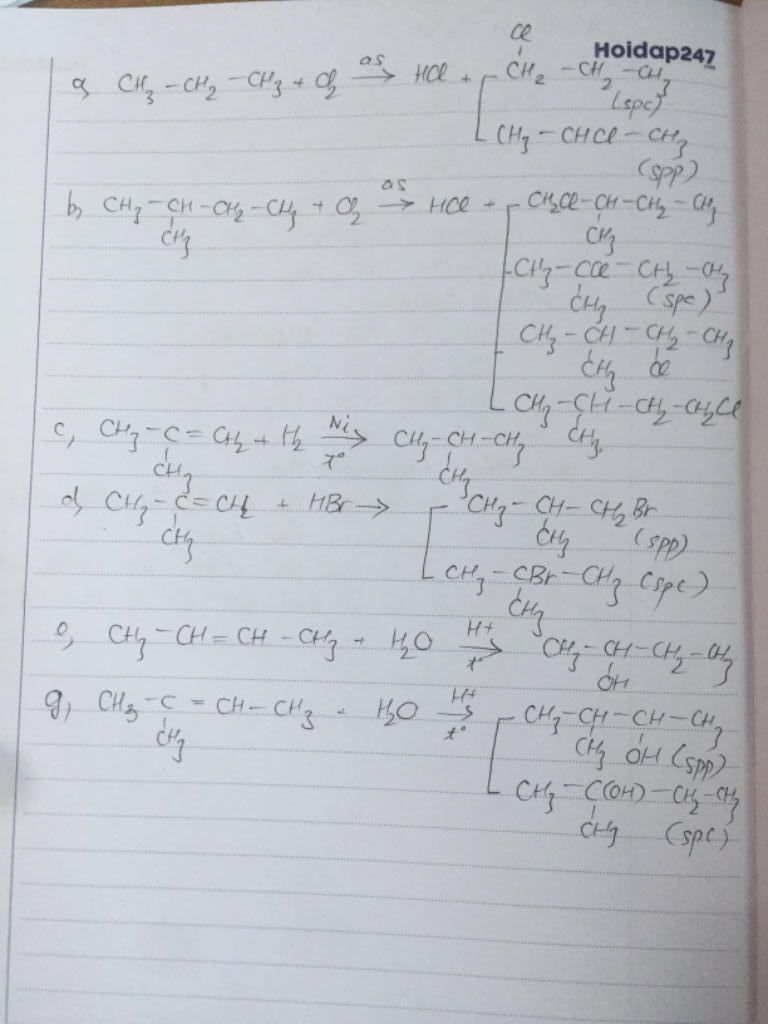 Hoidap247
Cl
a, CH₃ – CH₂ – CH₃ + Cl₂ as→ HCl + CH₂ – CH₂ – CH₃
(spc)
CH₃ – CHCl – CH₃
(spp)
b, CH₃ – CH – CH₂ – CH₃ + Cl₂ as→ HCl + CH₂Cl – CH – CH₂ – CH₃
CH₃ CH₃
CH₃ – CCl – CH₂ – CH₃
CH₃ (spc)
CH₃ – CH – CH₂ – CH₃
CH₃ Cl
CH₃ – CH – CH₂ – CH₂Cl
CH₃
c, CH₃ – C = CH₂ + H₂ Ni→ t° CH₃ – CH – CH₃
CH₃ CH₃
d, CH₃ – C = CH₂ + HBr → CH₃ – CH – CH₂Br
CH₃ CH₃ (spp)
CH₃ – CBr – CH₃ (spc)
CH₃
e, CH₃ – CH = CH – CH₃ + H₂O H+→ t° CH₃ – CH – CH₂ – CH₃
OH
g, CH₃ – C = CH – CH₃ + H₂O H+→ t° CH₃ – CH – CH – CH₃
CH₃ CH₃ OH (spp)
CH₃ – C(OH) – CH₂ – CH₃
CH₃ (spc)